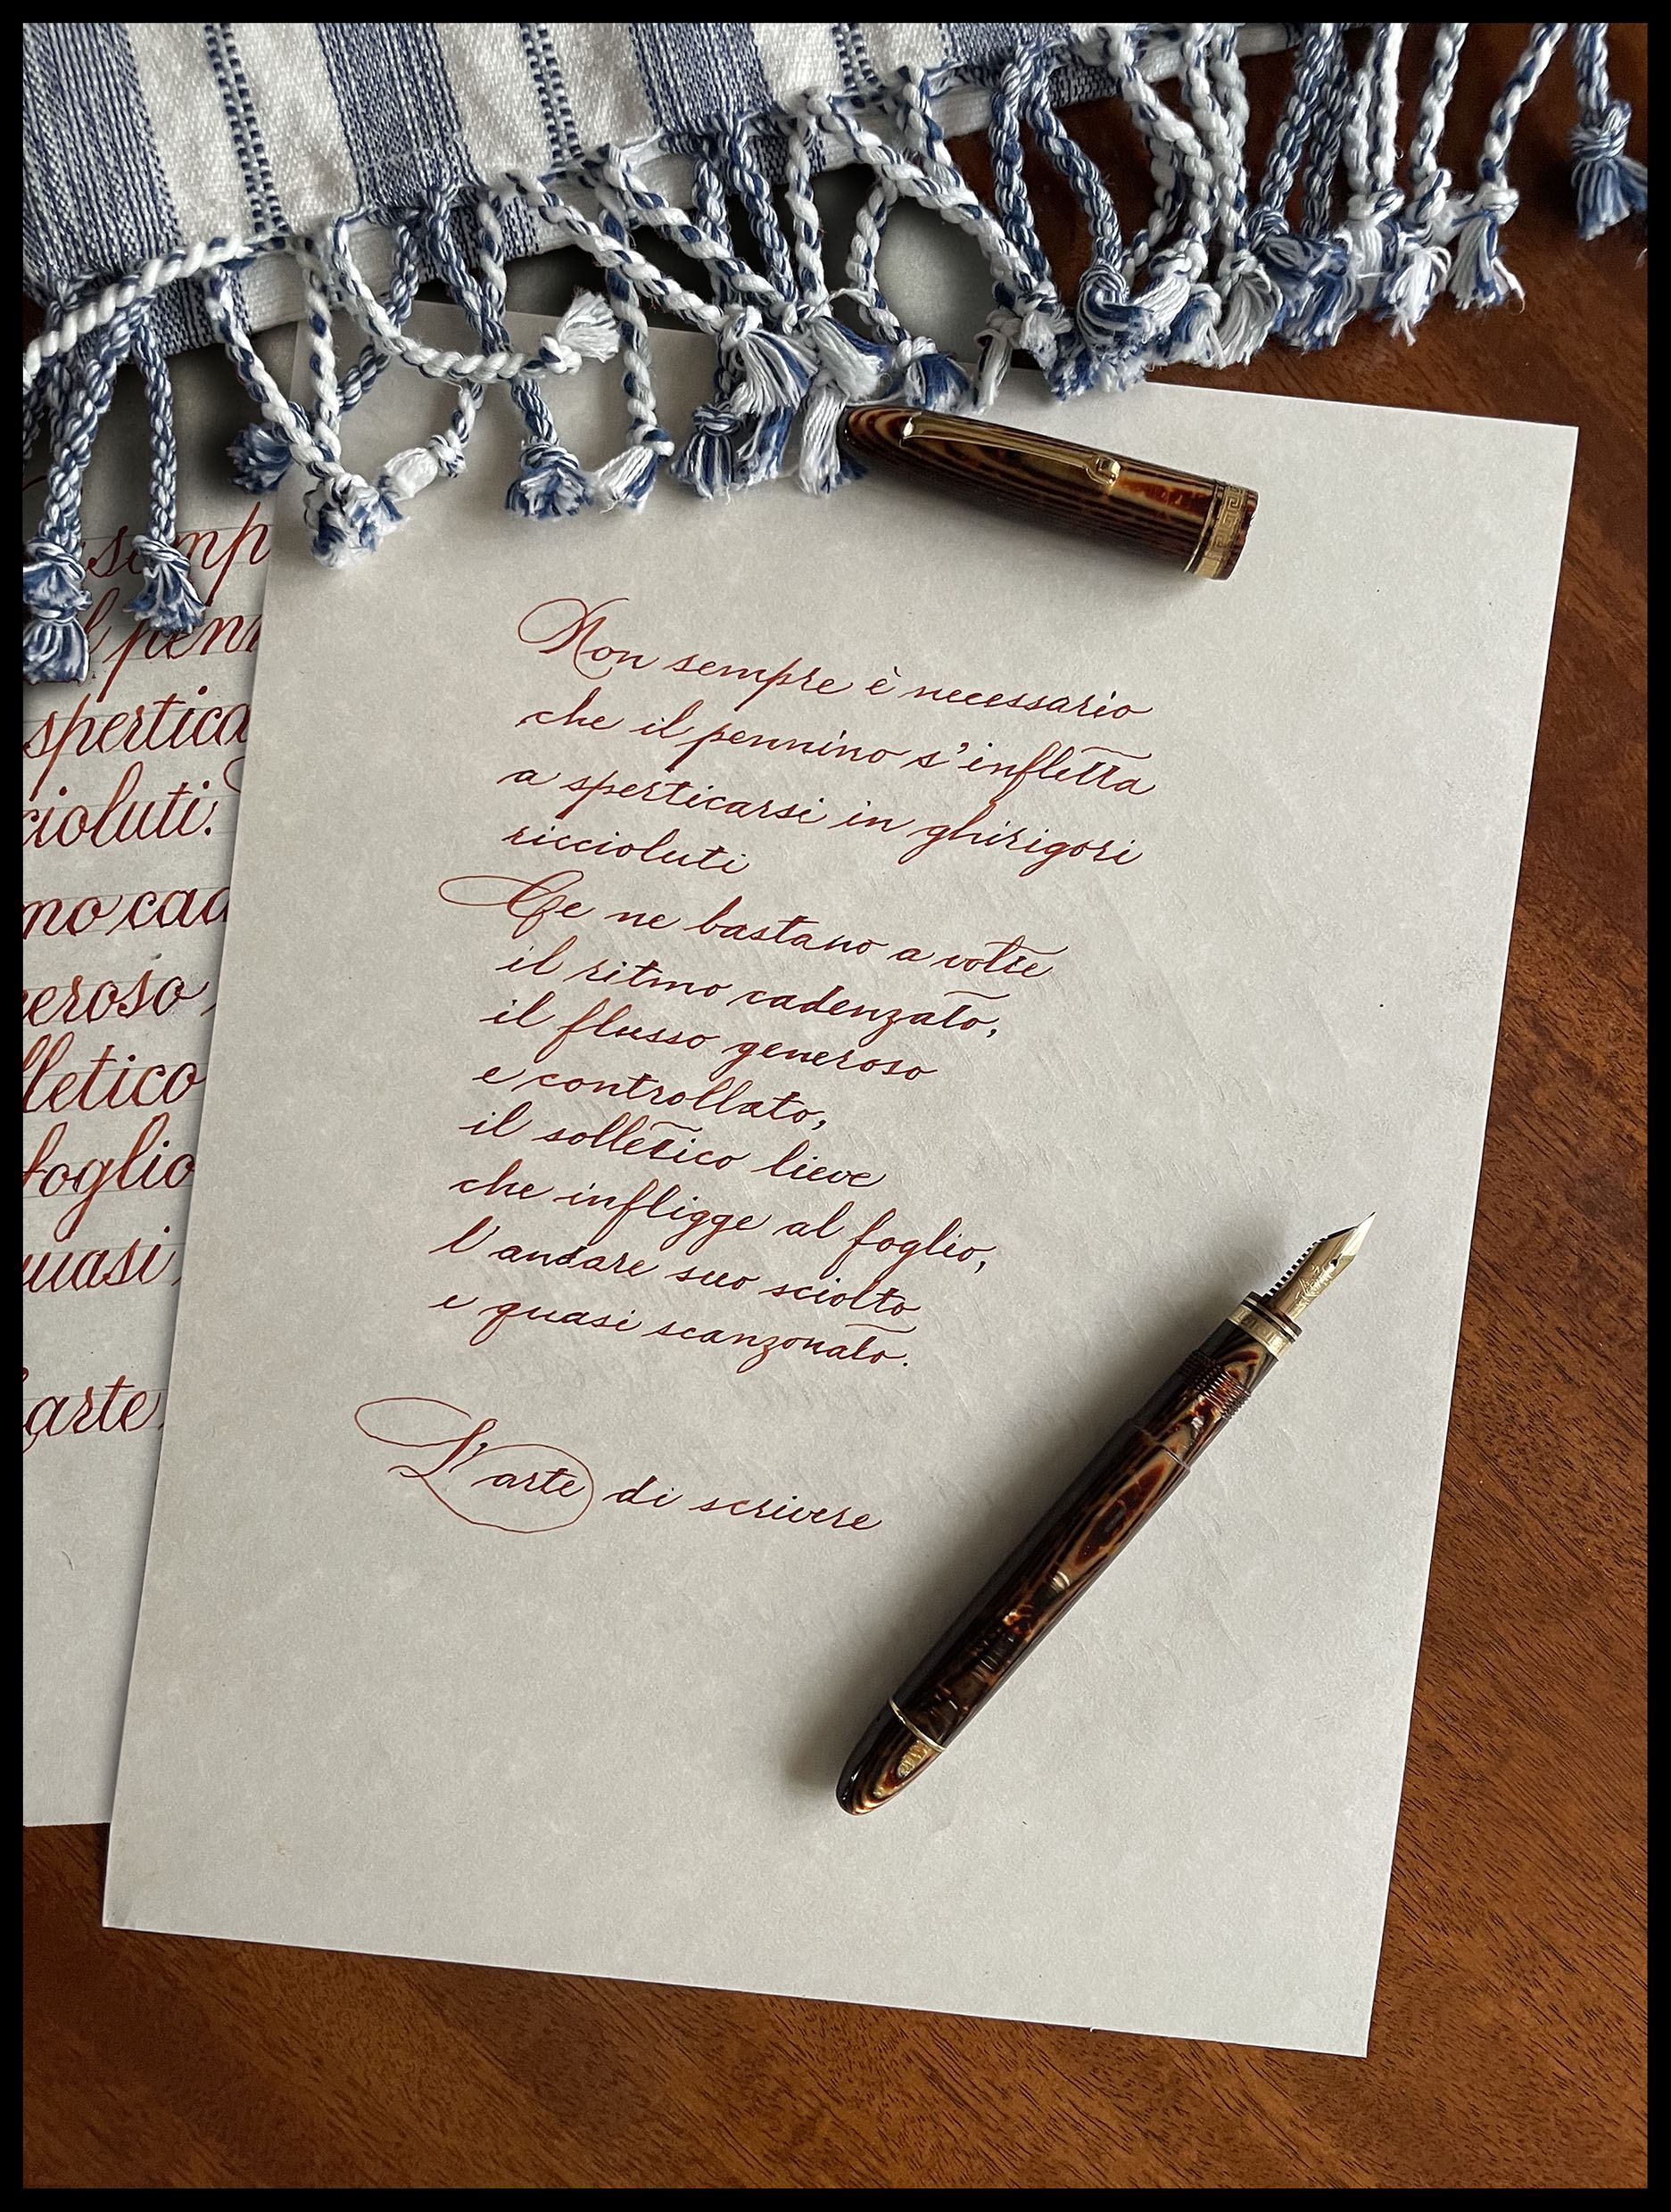 Non sempre è necessario
che il pennino s'infletta
a sperticarsi in ghirigori
riccioluti
Ce ne bastano a volte
il ritmo cadenzato,
il flusso generoso
e controllato,
il solletico lieve
che infligge al foglio,
l'andare suo sciolto
e quasi scanzonato.
L'arte di scrivere
semp
l penn
spertica
cioluti.
mo cad
neroso,
lletico
foglio
uasi
arte